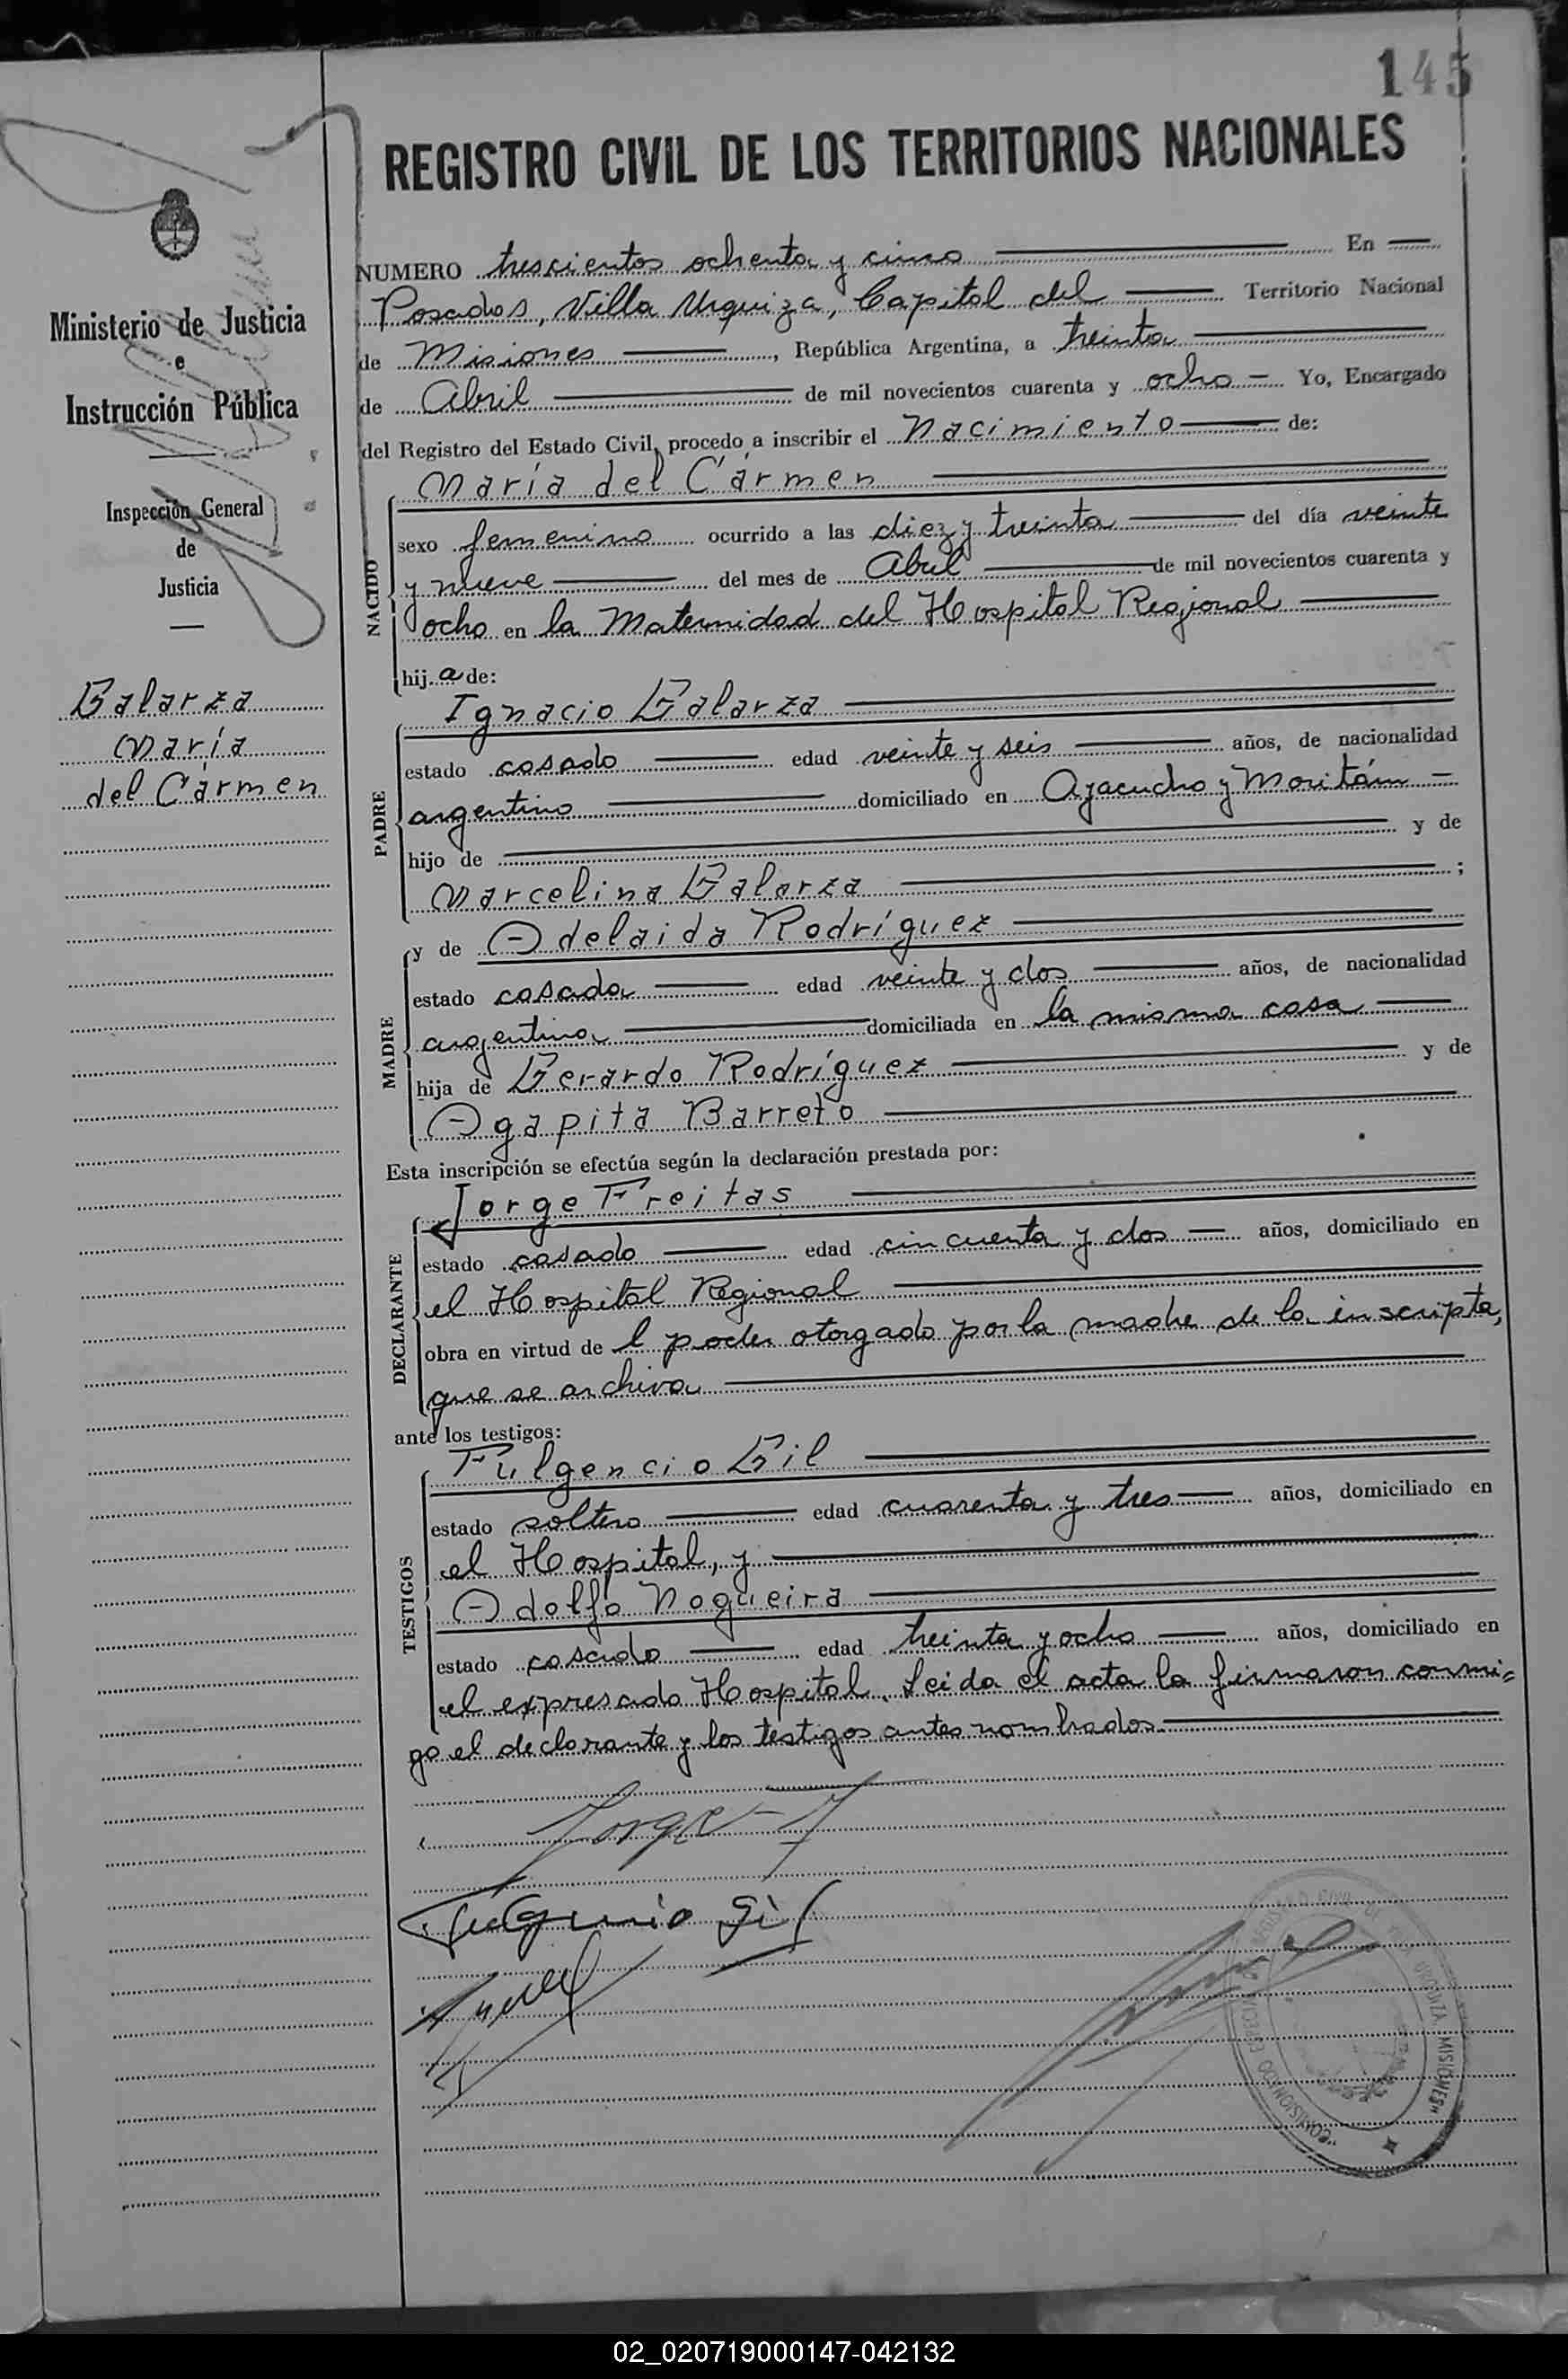 145
REGISTRO CIVIL DE LOS TERRITORIOS NACIONALES
Ministerio de Justicia
e
Instrucción Pública
Inspección General
de
Justicia
Galarza
María
del Cármen
NUMERO trescientos ochenta y cinco En
Posadas, Villa Urquiza, Capital del Territorio Nacional
de Misiones, República Argentina, a treinta
de Abril de mil novecientos cuarenta y ocho Yo, Encargado
del Registro del Estado Civil, procedo a inscribir el Nacimiento de:
NACIDO
María del Cármen
sexo femenino ocurrido a las diez y treinta del día veinte
y nueve del mes de Abril de mil novecientos cuarenta y
ocho en la Maternidad del Hospital Regional
hij a de:
PADRE
Ignacio Galarza
estado casado edad veinte y seis años, de nacionalidad
argentino domiciliado en Ayacucho y Moritán
hijo de y de
Marcelina Galarza ;
MADRE
y de Adelaida Rodríguez
estado casada edad veinte y dos años, de nacionalidad
argentina domiciliada en la misma casa
hija de Gerardo Rodríguez y de
Agapita Barreto
Esta inscripción se efectúa según la declaración prestada por:
DECLARANTE
Jorge Freitas
estado casado edad cincuenta y dos años, domiciliado en
el Hospital Regional
obra en virtud de l poder otorgado por la madre de la inscripta,
que se archiva
ante los testigos:
TESTIGOS
Fulgencio Gil
estado soltero edad cuarenta y tres años, domiciliado en
el Hospital, y
Adolfo Nogueira
estado casado edad treinta y ocho años, domiciliado en
el expresado Hospital. Leida el acta la firmaron conmi=
go el declarante y los testigos antes nombrados
Jorge F
Fulgencio Gil
URQUIZA, MISIONES
COMISIONADO ESPECIAL
02_020719000147-042132